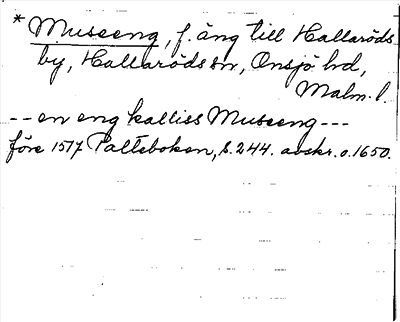 * Museeng, f. äng till Hallaröds
by, Hallaröds sn, Onsjö hd,
Malm. l.
-- en eng kalliss Museeng ---
före 1517 Paltsboken, s. 244. avskr. o. 1650.